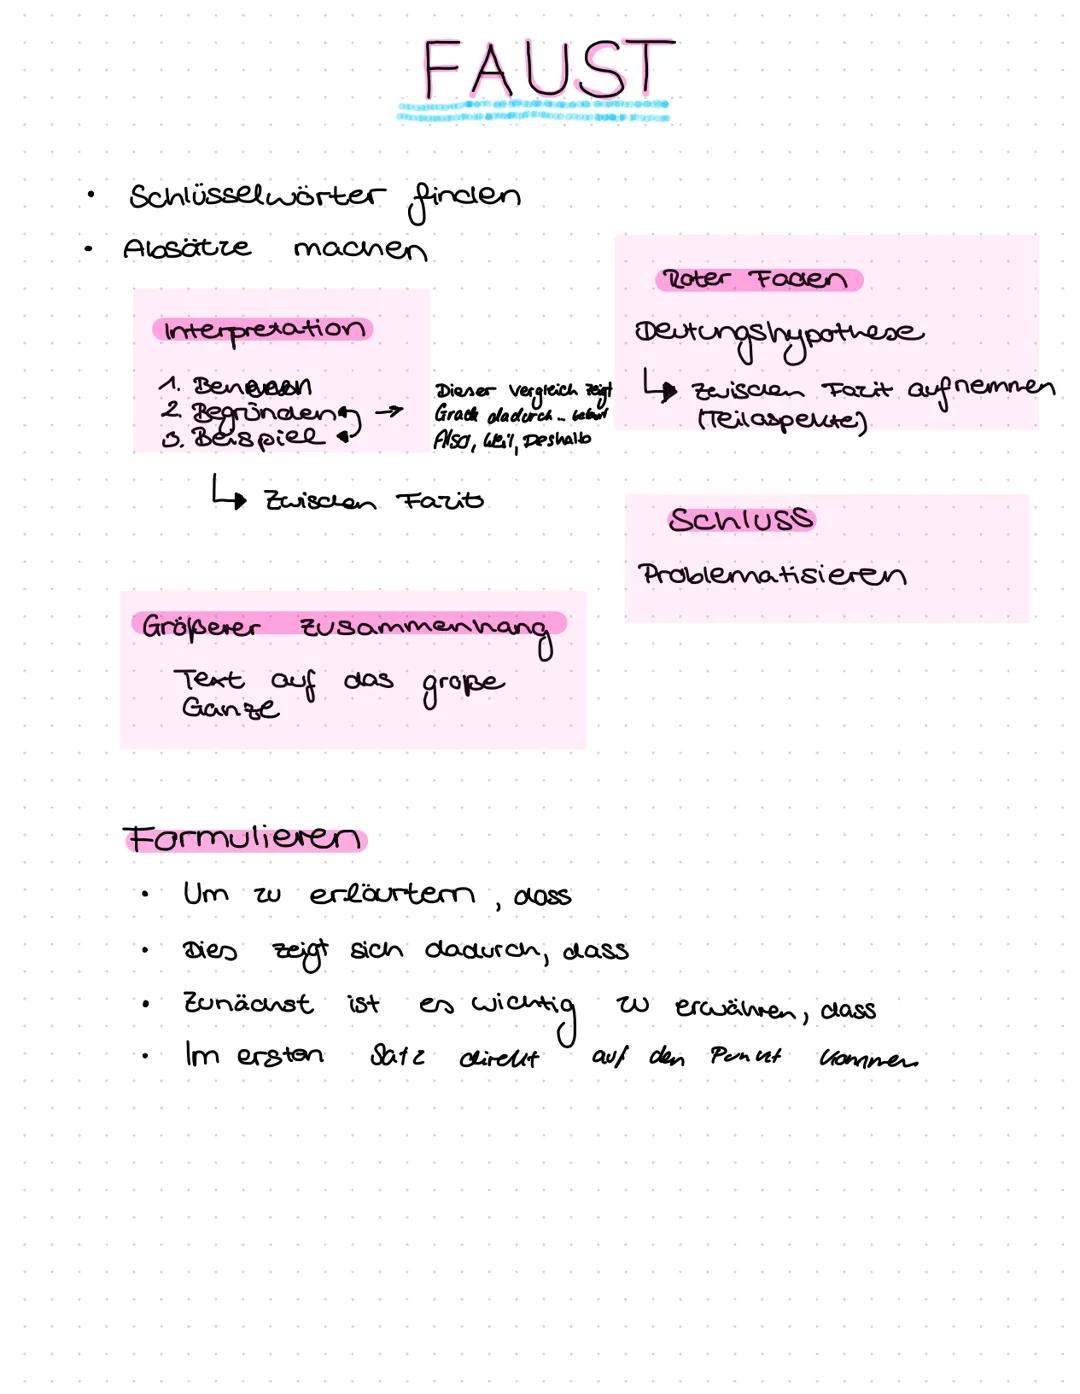 FAUST
• Schlüsselwörter finden
• Absätze machen
Interpretation
1. Benennen
2. Begründen →
3. Beispiel
Dieser Vergleich zeigt
dadurch ...
Also, weil, Deshalb
↳ Zwischen Fazit
Roter Faden
Deutungshypothese
↳ Zwischen Fazit aufnemmen
(Teilaspekte)
Schluss
Problematisieren
Größerer Zusammenhang
Text auf das große
Ganze
Formulieren
• Um zu erläurtern, dass
• Dies zeigt sich dadurch, dass
• Zunächst ist es wichtig zu erwähnen, dass
• Im ersten Satz direkt auf den Punkt kommen